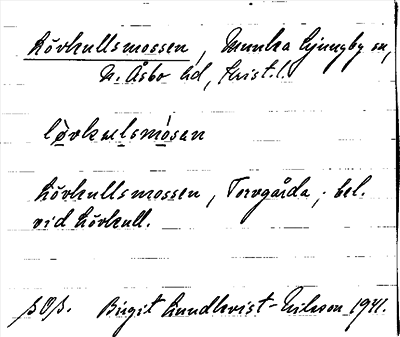 Lövkullsmossen, Munka Ljungby sn,
N. Åsbo hd, Krist. l.
lövkulsmósan
Lövkullsmossen, Torvgårda; bel.
vid Lövkull.
Birgit Lundkvist-Nilsson 1941.